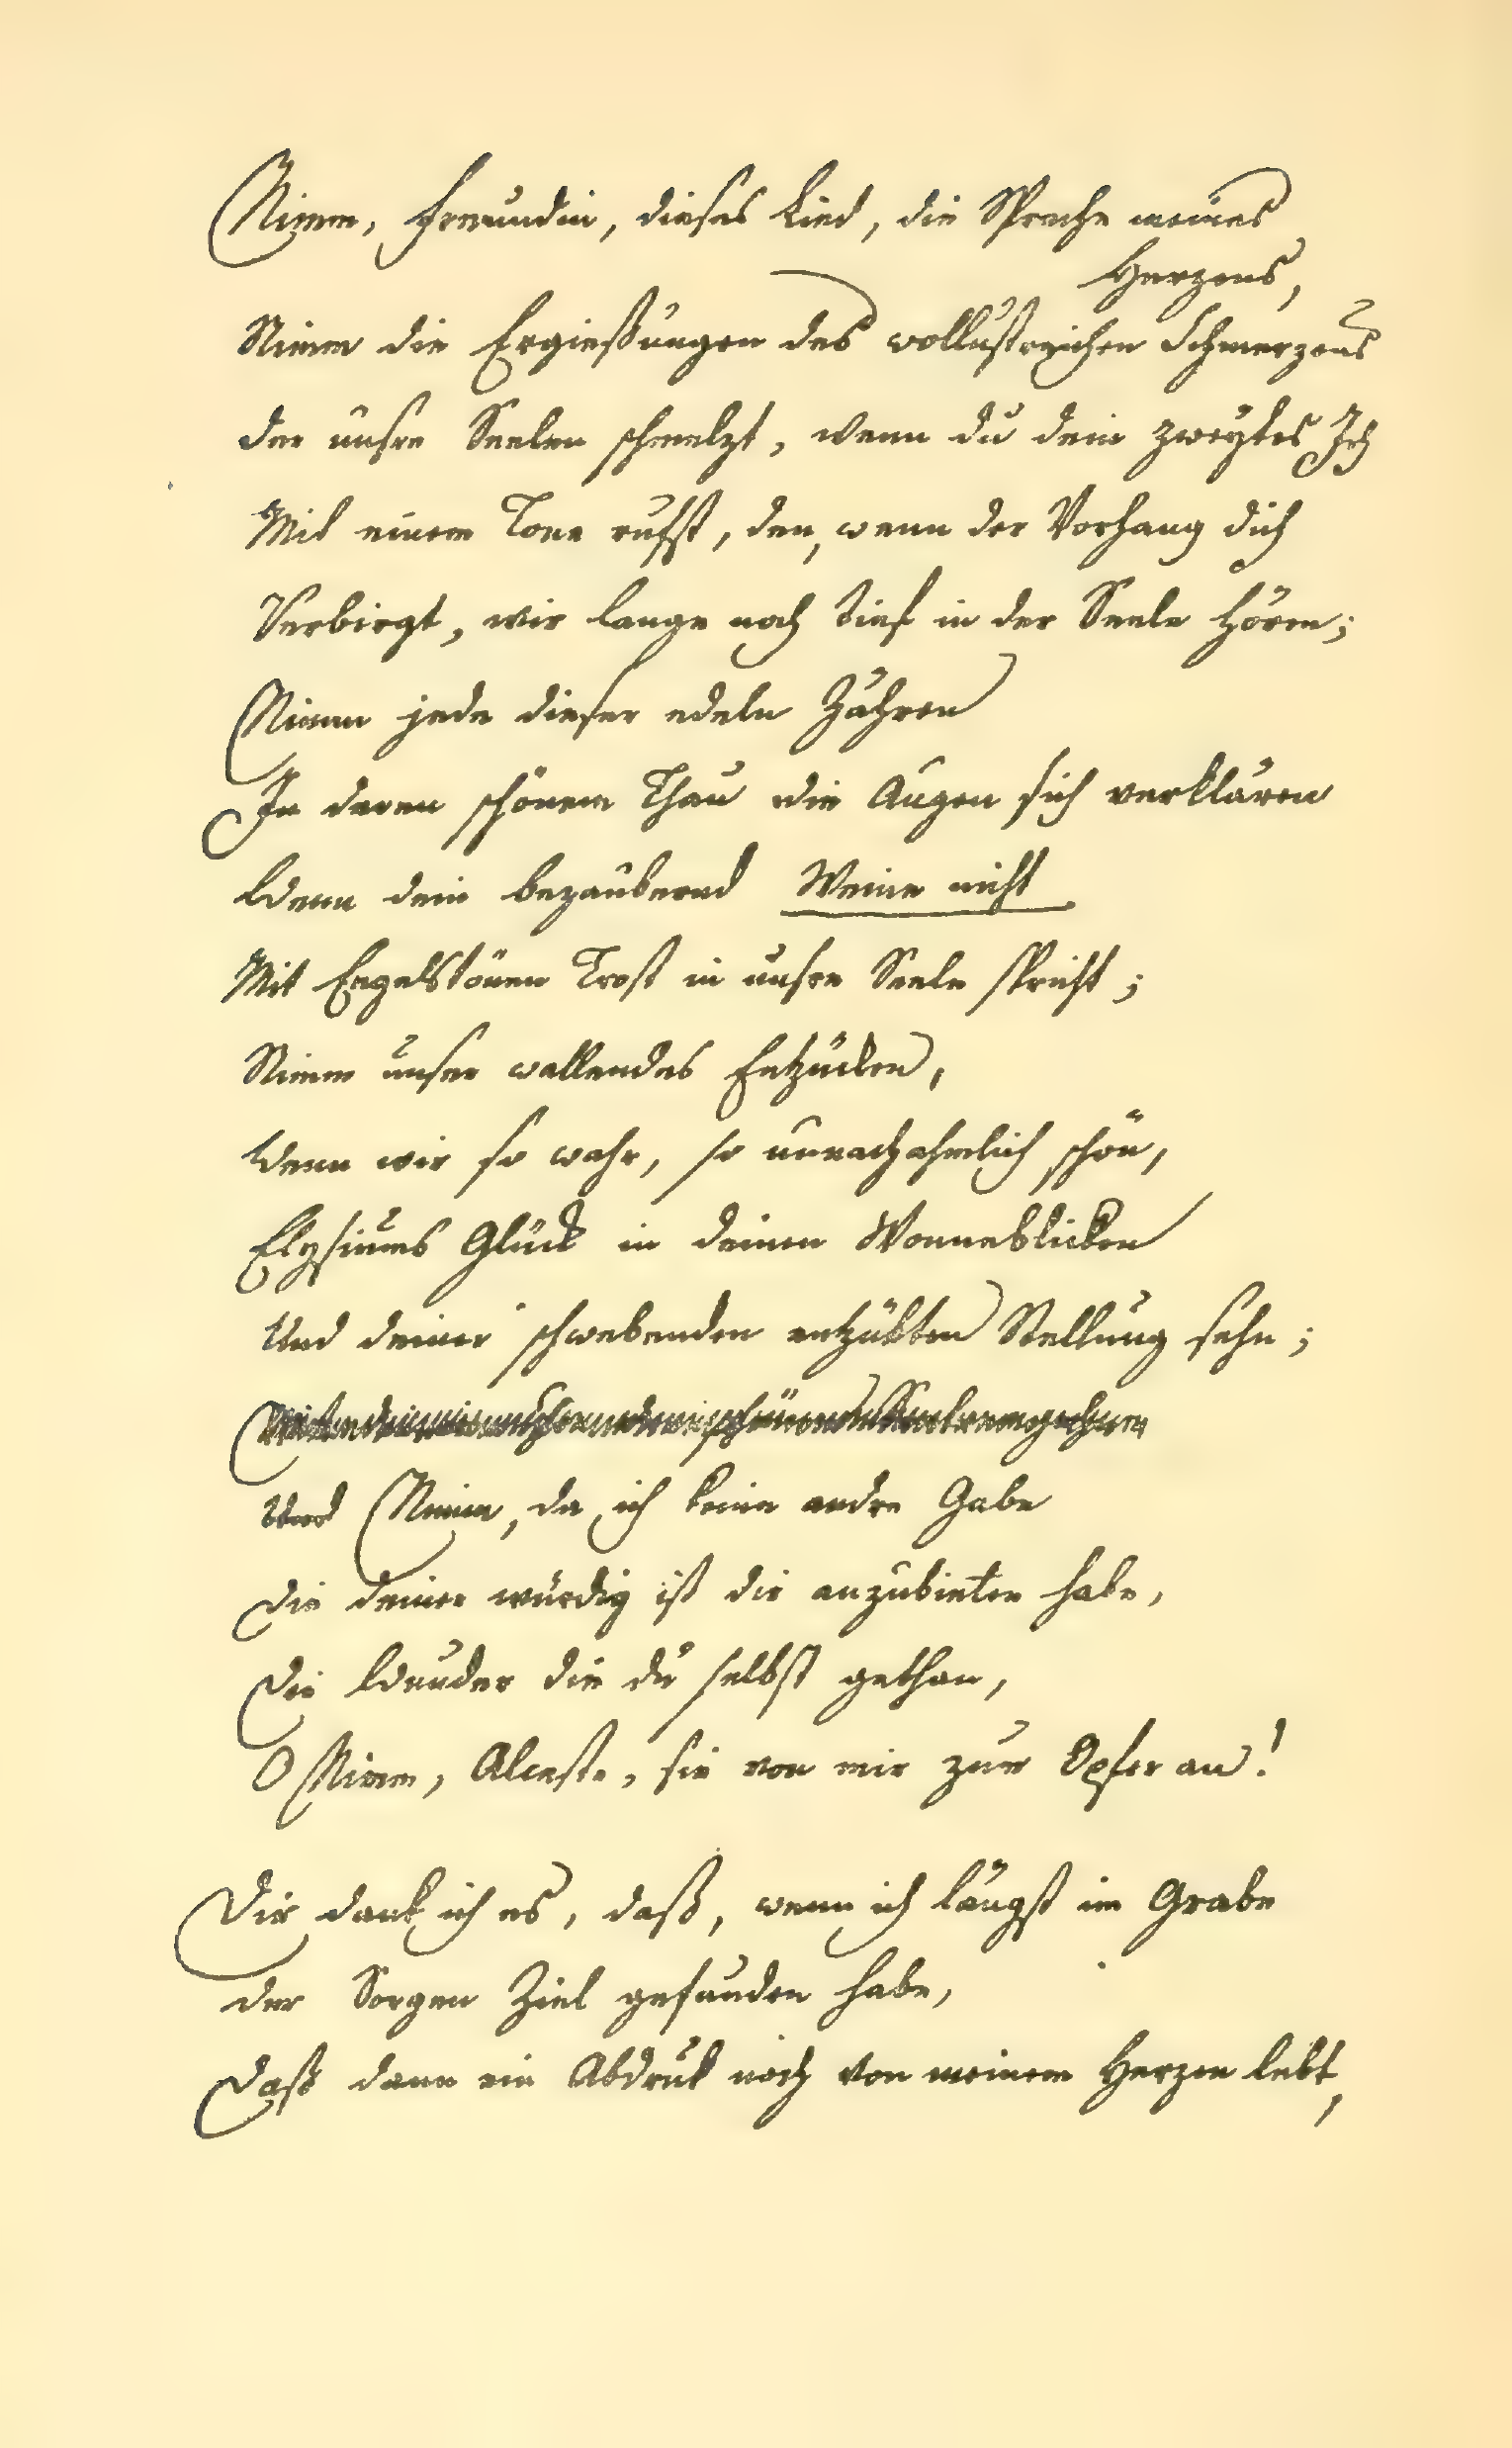 Nimm, Freundin, dieses Lied, die Sprache meines
Herzens,
Nimm die Ergießungen des wollustreichen Schmerzens
der unsre Seelen schmelzt, wenn du dein zweytes Ich
Mit einem Tone rufst, den, wenn der Vorhang dich
Verbirgt, wir lange noch tief in der Seele hören;
Nimm jede dieser edeln Zähren
In deren schönem Thau die Augen sich verklären
Wenn dein bezaubernd Weine nicht
Mit Engelstönen Trost in unsre Seele spricht;
Nimm unser wallendes Entzücken,
Wenn wir so wahr, so unnachahmlich schön,
Elysiums Glück in deinen Wonneblicken
Und deiner schwebenden entzükten Stellung sehn;
Und Nimm, da ich keine andre Gabe
Die deiner würdig ist dir anzubieten habe,
Die Wunder die du selbst gethan,
O Nimm, Alceste, sie von mir zum Opfer an!
Dir dank ich es, daß, wenn ich längst im Grabe
der Sorgen Ziel gefunden habe,
Daß dann ein Abdruk noch von meinem Herzen lebt,